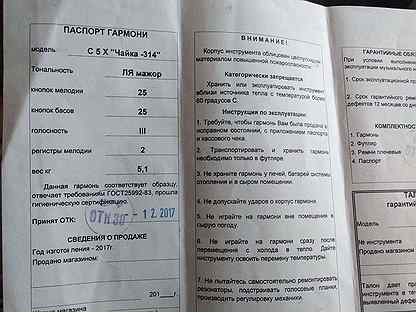 ПАСПОРТ ГАРМОНИ
модель С 5 Х "Чайка -314"
Тональность ЛЯ мажор
кнопок мелодии 25
кнопок басов 25
голосность III
регистры мелодии 2
вес кг 5,1
Данная гармонь соответствует образцу,
отвечает требованиям ГОСТ25992-83, прошла
гигиеническую сертификацию.
Принят ОТК: ОТК 30 - 12.2017
СВЕДЕНИЯ О ПРОДАЖЕ
Год изготов ления - 2017г.
Продано магазином:
201___г
магазина
ВНИМАНИЕ!
Корпус инструмента облицован целлулоидом
материалом повышенной пожароопасности.
Категорически запрещается
Хранить или эксплуатировать инструмент
вблизи источника тепла с температурой более
80 градусов С.
Инструкция по эксплуатации:
1. Требуйте, чтобы гармонь Вам была продана в
исправном состоянии, с приложением паспорта
и кассового чека.
2. Транспортировать и хранить гармонь
необходимо только в футляре.
3. Не храните гармонь у печей, батарей системы
отопления и в сыром помещении.
4. Не допускайте ударов о корпус гармони.
5. Не играйте на гармони вне помещения в
сырую погоду.
6. Не играйте на гармони сразу после
перемещения с холода в тепло. Дайте
инструменту освоить перемену температуры.
7. Не пытайтесь самостоятельно ремонтировать
резонаторы, подстраивать голосовые планки,
производить регулировку механики.
ГАРАНТИЙНЫЕ
При условии
эксплуатации музыкального
1. Срок эксплуатационной
2. Срок гарантийного
дефектов 12 месяцев со
КОМПЛЕКТНО
1. Гармонь
2. Футляр
3. Ремни плечевые
4. Паспорт
ТАЛОН
гарантийного
Модель
№ инструмента
Магазин
Талон дает
инструмента в
выявленный дефект